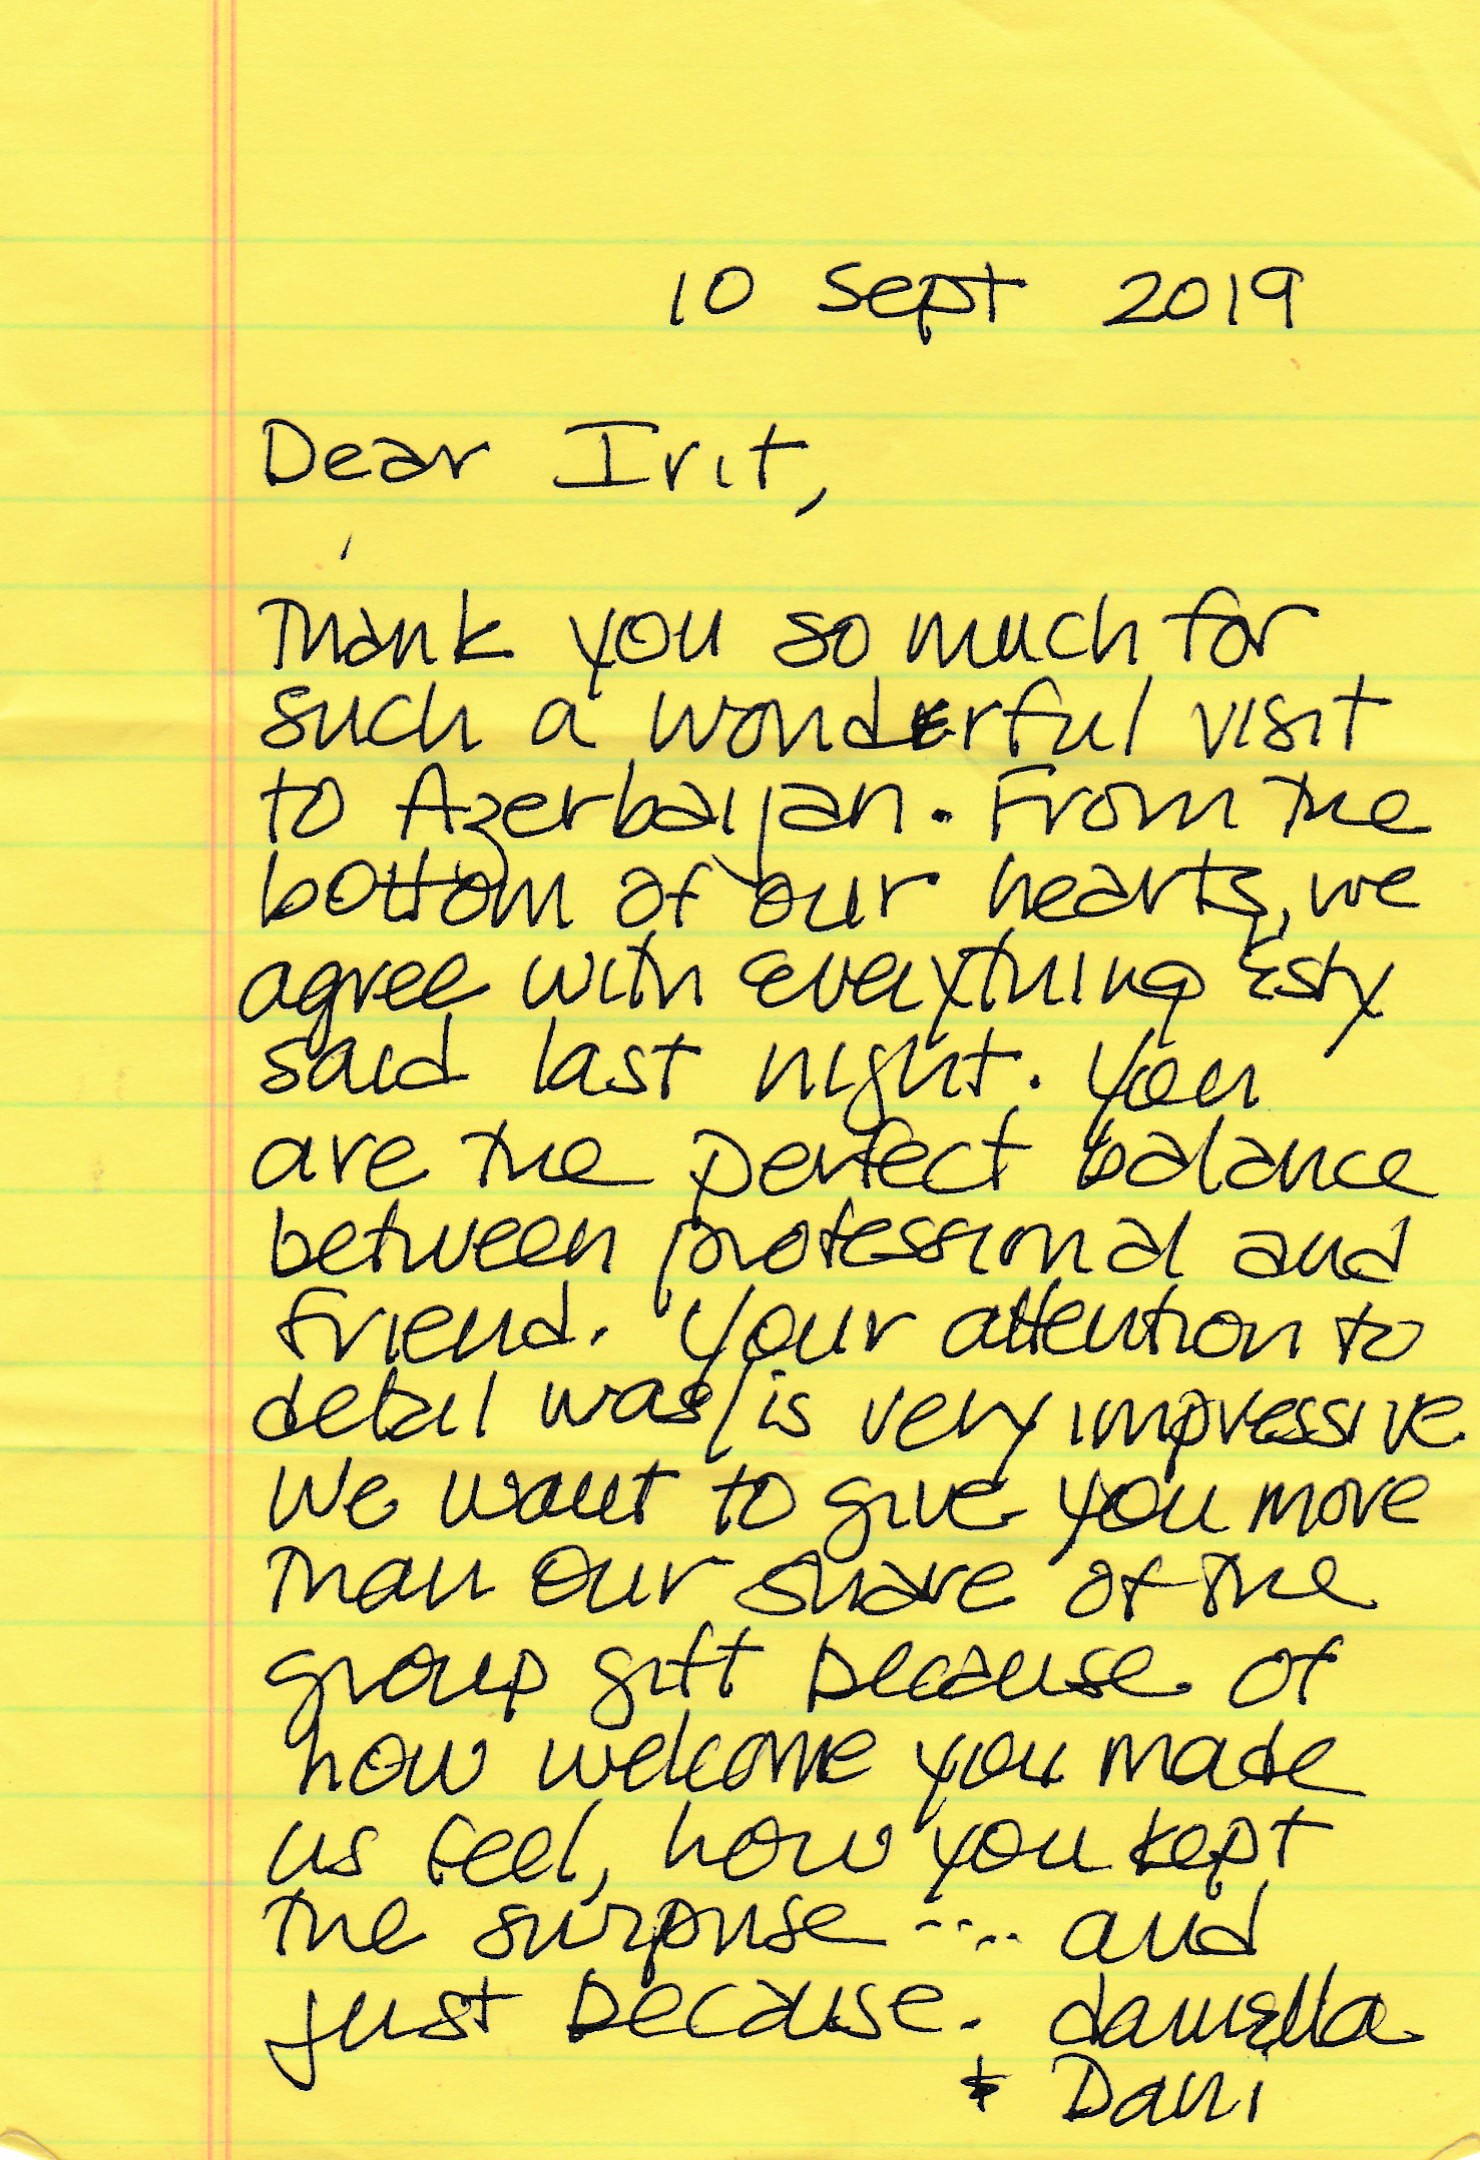 10 Sept 2019
Dear Irit,
Thank you so much for
such a wonderful visit
to Azerbaijan. From the
bottom of our hearts, we
agree with everything Esty
said last night. You
are the perfect balance
between professional and
friend. Your attention to
detail was/is very impressive.
We want to give you more
than our share of the
group gift because of
how welcome you made
us feel, how you kept
the surprise .... and
just because. daniella
& Dani